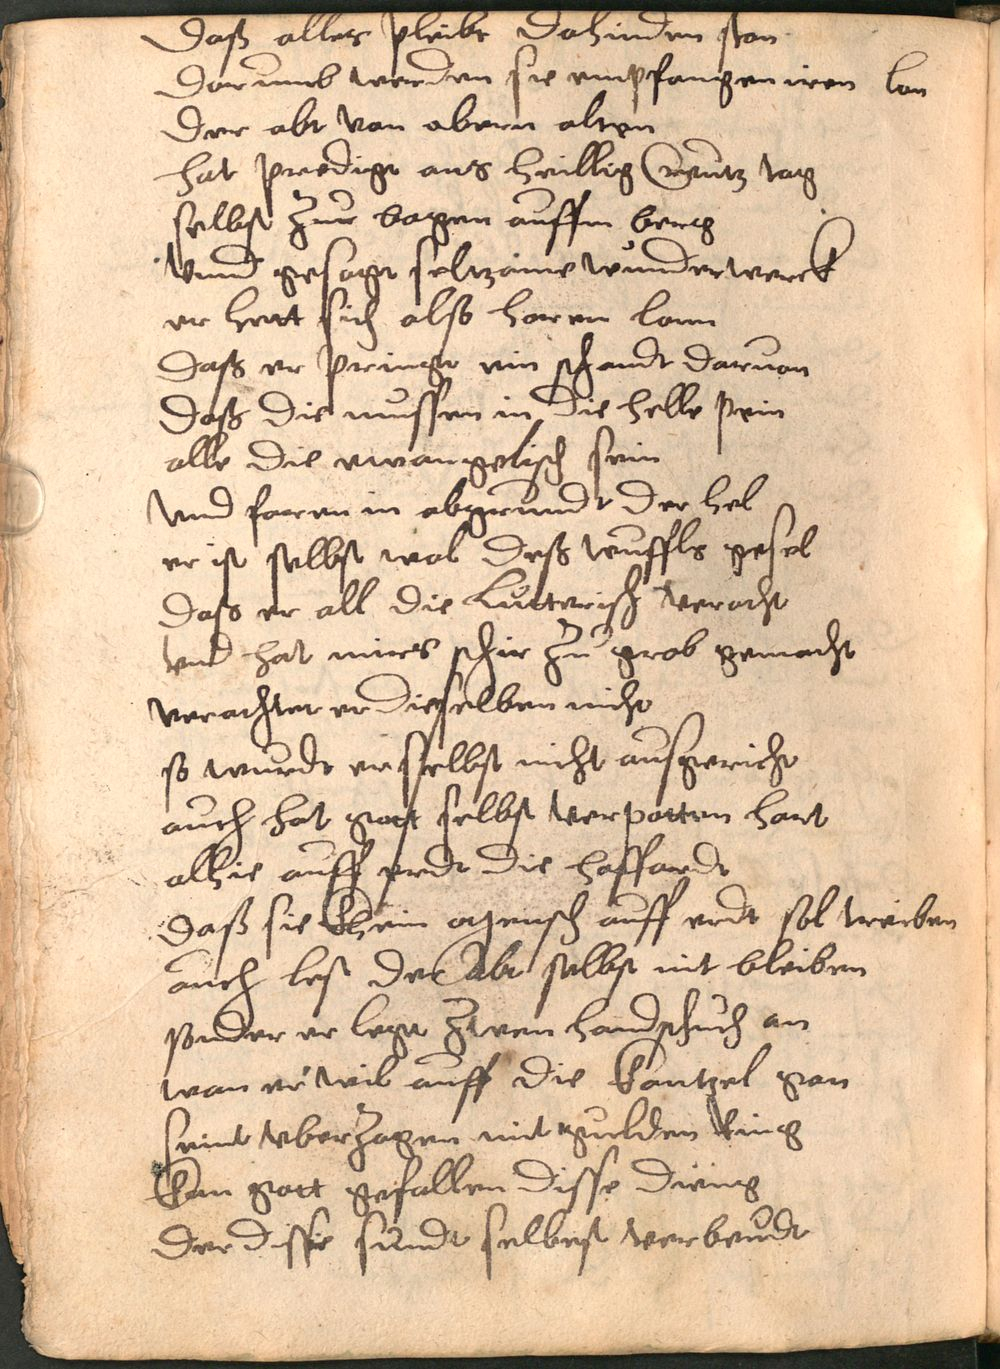 daß alles pleibt dahinden stan
darumb werden sie empfangen iren lon
der abt von obern alten
hat predigt ans heillig Creutz tag
selbst zur bogen auffm berg
vnnd gesagt seltzame wunderwerck
er hett sich also horen lonn
daß er pringt ein schandt daruon
daß die mussen in die helle pein
alle die ewangelisch sein
vnd faren in abgrundt der hel
er ist selbst wol deß teuffls gesel
daß er all die Lutterisch veracht
vnd hat mirs schir zu grob gemacht
verachtet er dieselben nicht
so wurdt er selbst nicht ausgericht
auch hat gott selbst verpotten hart
alhie auff erdt die hoffardt
daß sie khein mensch auff erdt sol treiben
auch lest der Abt selbst nit bleiben
sonder er legt zwen handschuch an
wan er wil auff die Cantzel gan
seint vberzogen mit gulden Ring
kan gott gefallen disse dieng
der disse sundt selbest verbeudt